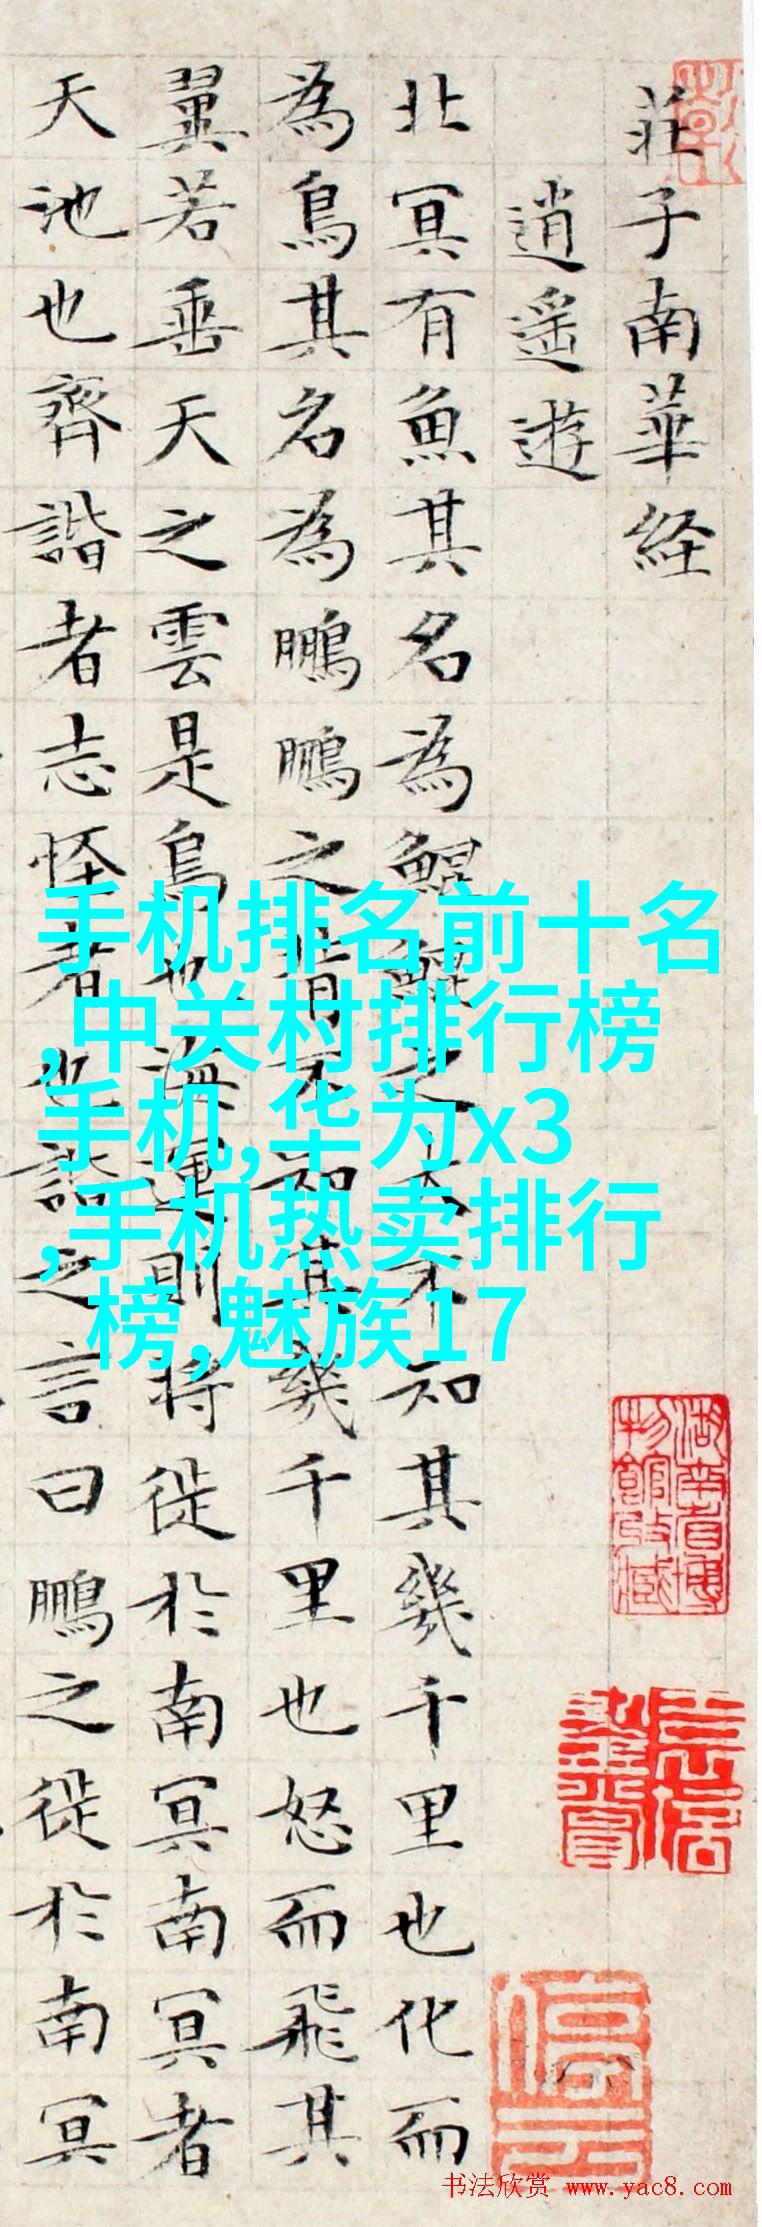 莊子南華経
逍遥遊
北冥有魚其名為鯤鯤之大不知其幾千里也化而
為鳥其名為鵬鵬之背不知其幾千里也怒而飛其
翼若垂天之雲是鳥也海運則将徙於南冥南冥者
天池也齊諧者志怪者也諧之言曰鵬之徙於南冥
手机排名前十名
,中关村排行榜
手机,华为x3
,手机热卖排行
榜,魅族17
湖南省博
物館收藏
书法欣赏 www.yac8.com